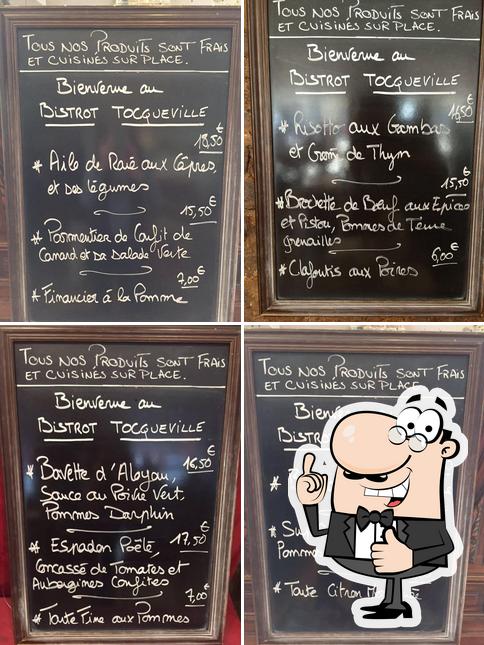 TOUS NOS PRODUITS SONT FRAIS
ET CUISINÉS SUR PLACE.
Bienvenue au
BISTROT TOCQUEVILLE
18,50€
* Aile de Raie aux Câpres,
et ses légumes
15,50€
* Parmentier de Confit de
Canard et sa Salade Verte
7,00€
* Financier à la Pomme
TOUS NOS PRODUITS SONT FRAIS
ET CUISINÉS SUR PLACE.
Bienvenue au
BISTROT TOCQUEVILLE
€
* Risotto aux Gambas
et de Thym
15,50€
* Brochette de Bœuf aux Epices
et Pistou, Pommes de Terre
grenailles
6,00€
* Clafoutis aux Poires
TOUS NOS PRODUITS SONT FRAIS
ET CUISINÉS SUR PLACE.
Bienvenue au
BISTROT TOCQUEVILLE
16,50€
* Bavette d'Aloyau,
Sauce au Poivre Vert
Pommes Darphin
17,50€
* Espadon Poêlé,
Concassé de Tomates et
Aubergines Confites
7,00€
* Tarte Fine aux Pommes
TOUS NOS PRODUITS SONT FRAIS
ET CUISINÉS SUR PLACE
*
*
* Tarte Citron